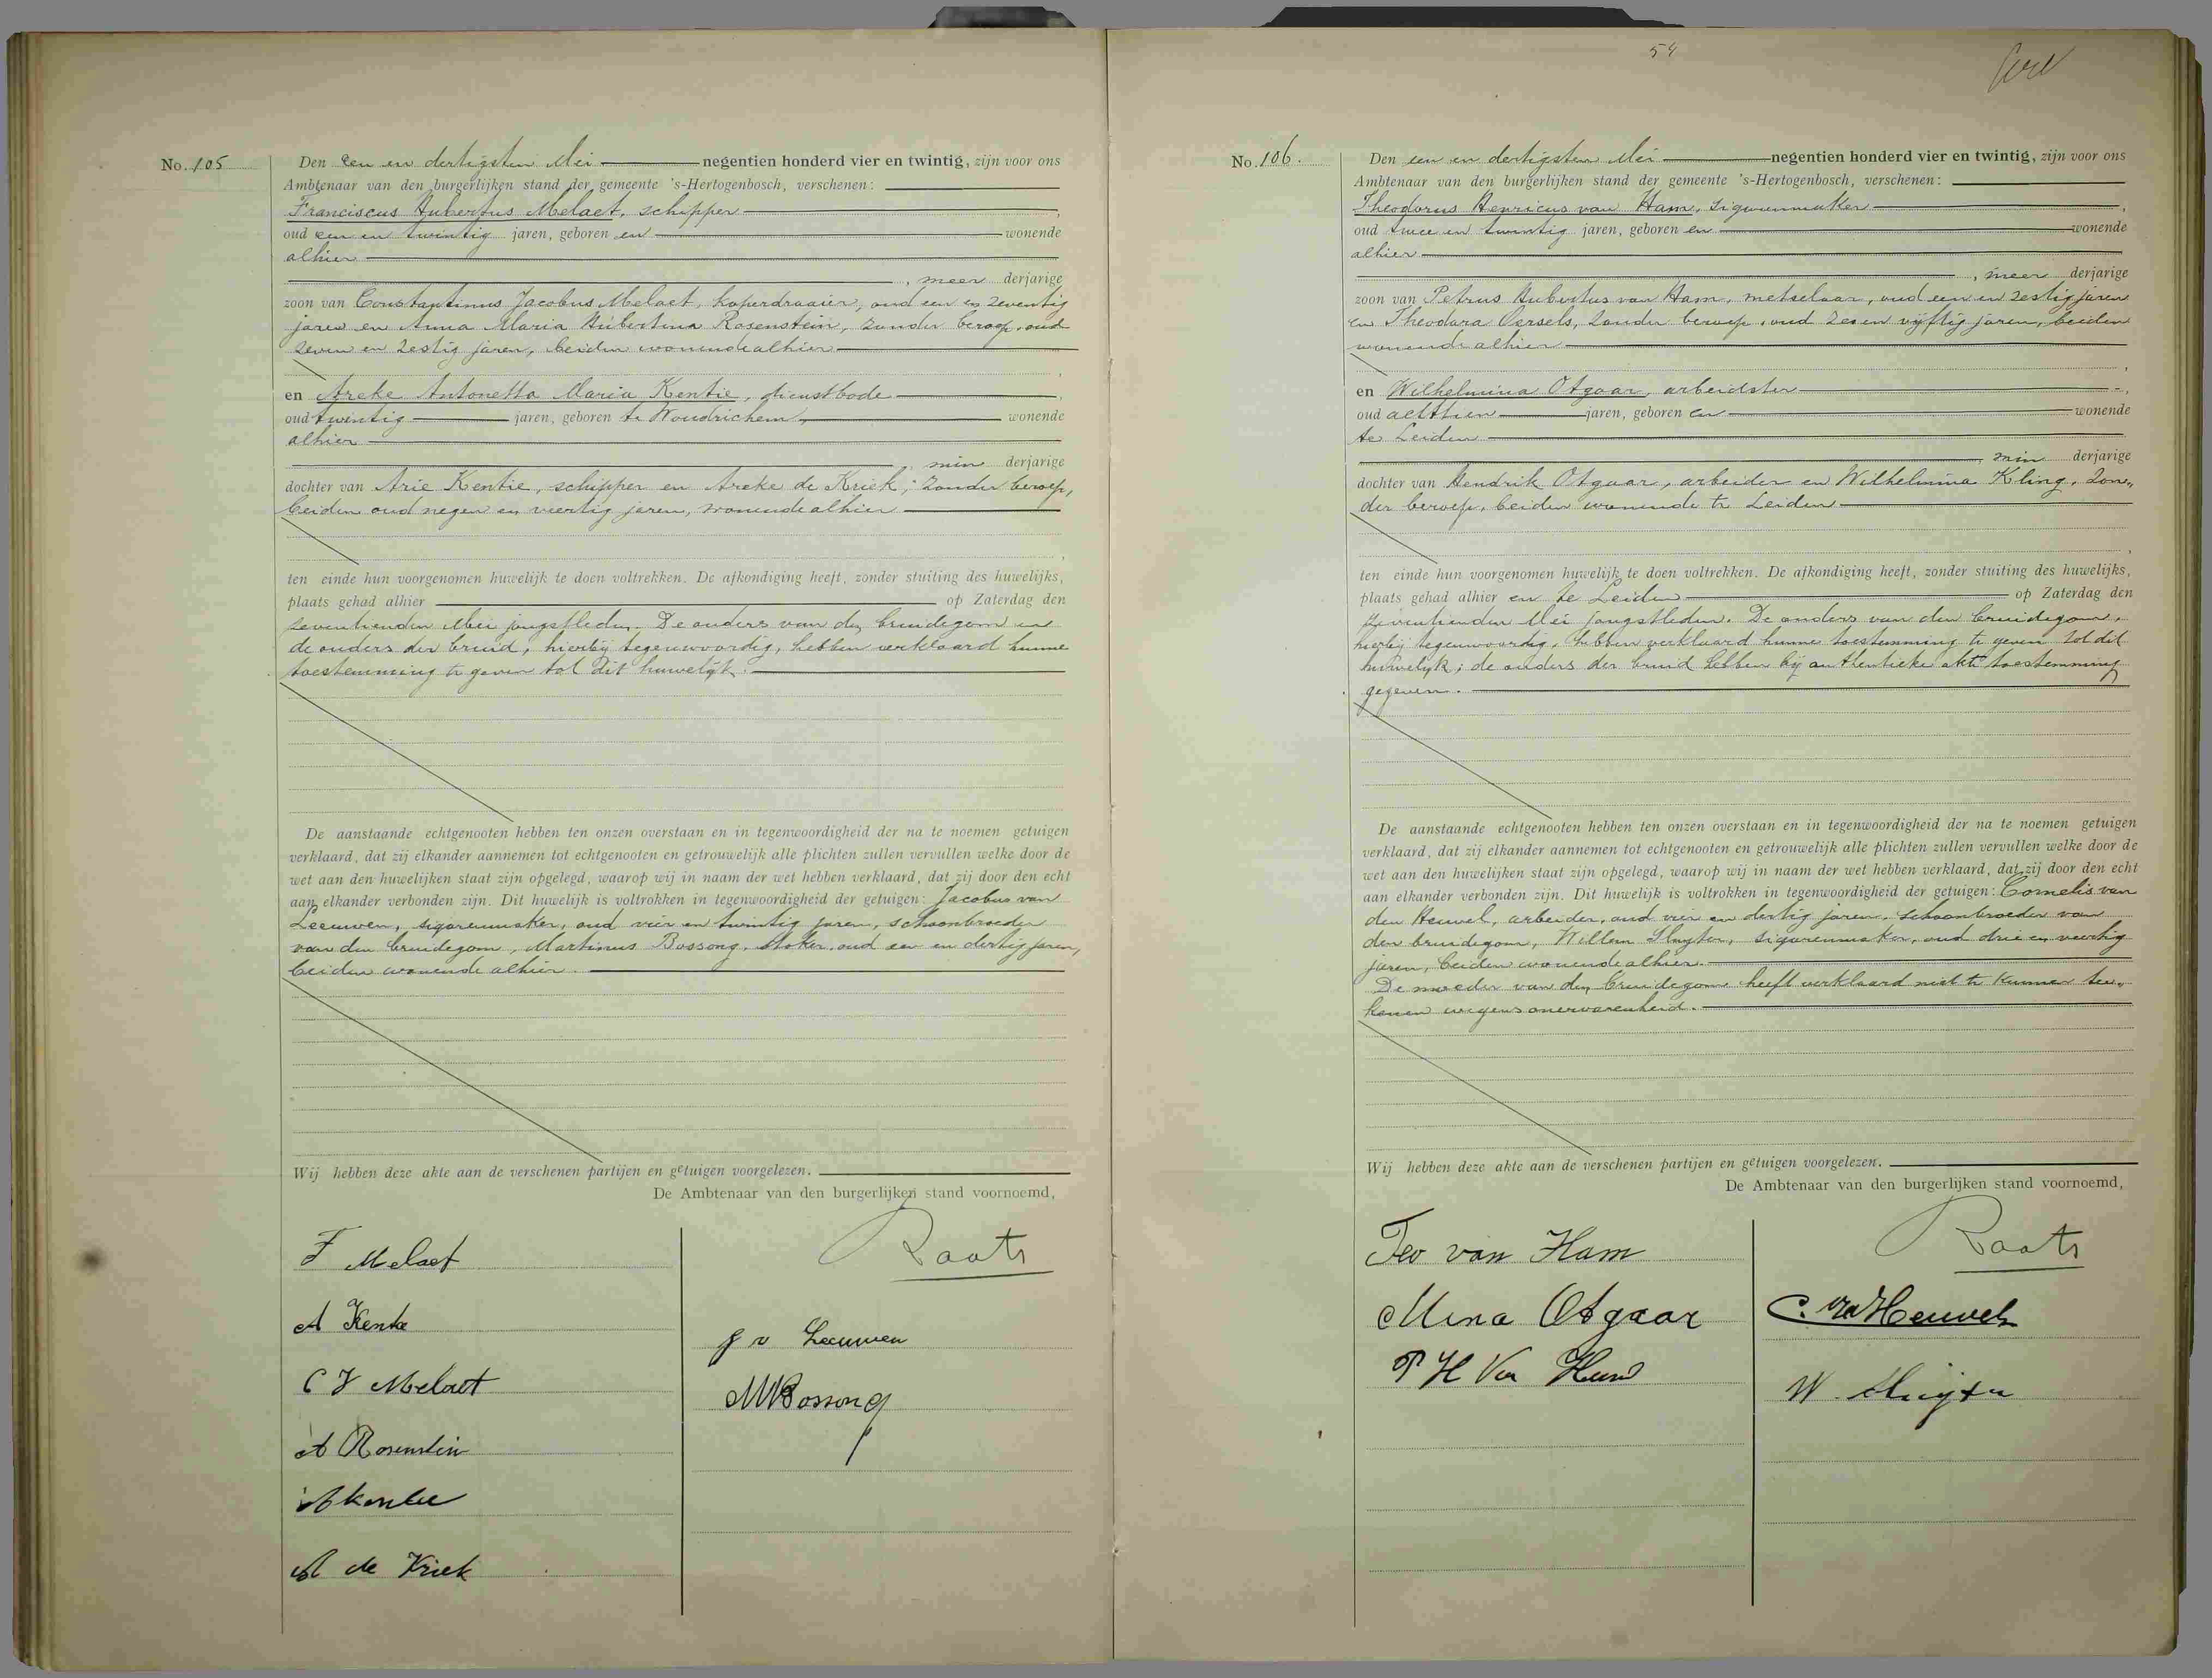 No. 105
Den een en dertigsten Mei negentien honderd vier en twintig, zijn voor ons
Ambtenaar van den burgerlijken stand der gemeente 's-Hertogenbosch, verschenen:
Franciscus Hubertus Melaet, schipper,
oud een en twintig jaren, geboren en wonende
alhier
, meer derjarige
zoon van Constantinus Jacobus Melaet, koperdraaier, oud een en zeventig
jaren en Anna Maria Hubertina Rosenstein, zonder beroep, oud
zeven en zestig jaren, beiden wonende alhier
en Areke Antonetta Maria Kentie, dienstbode,
oud twintig jaren, geboren te Woudrichem, wonende
alhier
, min derjarige
dochter van Arie Kentie, schipper en Areke de Kriek, zonder beroep,
beiden oud negen en veertig jaren, wonende alhier
ten einde hun voorgenomen huwelijk te doen voltrekken. De afkondiging heeft, zonder stuiting des huwelijks,
plaats gehad alhier op Zaterdag den
zeventienden Mei jongstleden. De ouders van den bruidegom en
de ouders der bruid, hierbij tegenwoordig, hebben verklaard hunne
toestemming te geven tot dit huwelijk.
De aanstaande echtgenooten hebben ten onzen overstaan en in tegenwoordigheid der na te noemen getuigen
verklaard, dat zij elkander aannemen tot echtgenooten en getrouwelijk alle plichten zullen vervullen welke door de
wet aan den huwelijken staat zijn opgelegd, waarop wij in naam der wet hebben verklaard, dat zij door den echt
aan elkander verbonden zijn. Dit huwelijk is voltrokken in tegenwoordigheid der getuigen: Jacobus van
Leeuwen, sigarenmaker, oud vier en twintig jaren, schoonbroeder
van den bruidegom, Martinus Bossong, stoker, oud een en dertig jaren,
beiden wonende alhier.
Wij hebben deze akte aan de verschenen partijen en getuigen voorgelezen.
De Ambtenaar van den burgerlijken stand voornoemd,
Raats
F Melaet
A Kentie
J v Leeuwen
C J Melaet
M Bossong
A Rosenstein
A Kentie
A de Kriek
54
No. 106.
Den een en dertigsten Mei negentien honderd vier en twintig, zijn voor ons
Ambtenaar van den burgerlijken stand der gemeente 's-Hertogenbosch, verschenen:
Theodorus Henricus van Ham, sigarenmaker,
oud twee en twintig jaren, geboren en wonende
alhier
, meer derjarige
zoon van Petrus Hubertus van Ham, metselaar, oud een en zestig jaren
en Theodora Oersels, zonder beroep, oud zes en vijftig jaren, beiden
wonende alhier
en Wilhelmina Otgaar, arbeidster,
oud achttien jaren, geboren en wonende
te Leiden
, min derjarige
dochter van Hendrik Otgaar, arbeider en Wilhelmina Kling, zon„
der beroep, beiden wonende te Leiden
ten einde hun voorgenomen huwelijk te doen voltrekken. De afkondiging heeft, zonder stuiting des huwelijks,
plaats gehad alhier en te Leiden op Zaterdag den
zeventienden Mei jongstleden. De ouders van den bruidegom,
hierbij tegenwoordig, hebben verklaard hunne toestemming te geven tot dit
huwelijk; de ouders der bruid hebben bij authentieke akte toestemming
gegeven.
De aanstaande echtgenooten hebben ten onzen overstaan en in tegenwoordigheid der na te noemen getuigen
verklaard, dat zij elkander aannemen tot echtgenooten en getrouwelijk alle plichten zullen vervullen welke door de
wet aan den huwelijken staat zijn opgelegd, waarop wij in naam der wet hebben verklaard, dat zij door den echt
aan elkander verbonden zijn. Dit huwelijk is voltrokken in tegenwoordigheid der getuigen: Cornelis van
den Heuvel, arbeider, oud vier en dertig jaren, schoonbroeder van
den bruidegom, Willem Sluyter, sigarenmaker, oud drie en veertig
jaren, beiden wonende alhier.
De moeder van den bruidegom heeft verklaard niet te kunnen tee„
kenen wegens onervarenheid.
Wij hebben deze akte aan de verschenen partijen en getuigen voorgelezen.
De Ambtenaar van den burgerlijken stand voornoemd,
Raats
Teo van Ham
Mina Otgaar
C. vd Heuvel
P H Van Ham
W. Sluijter